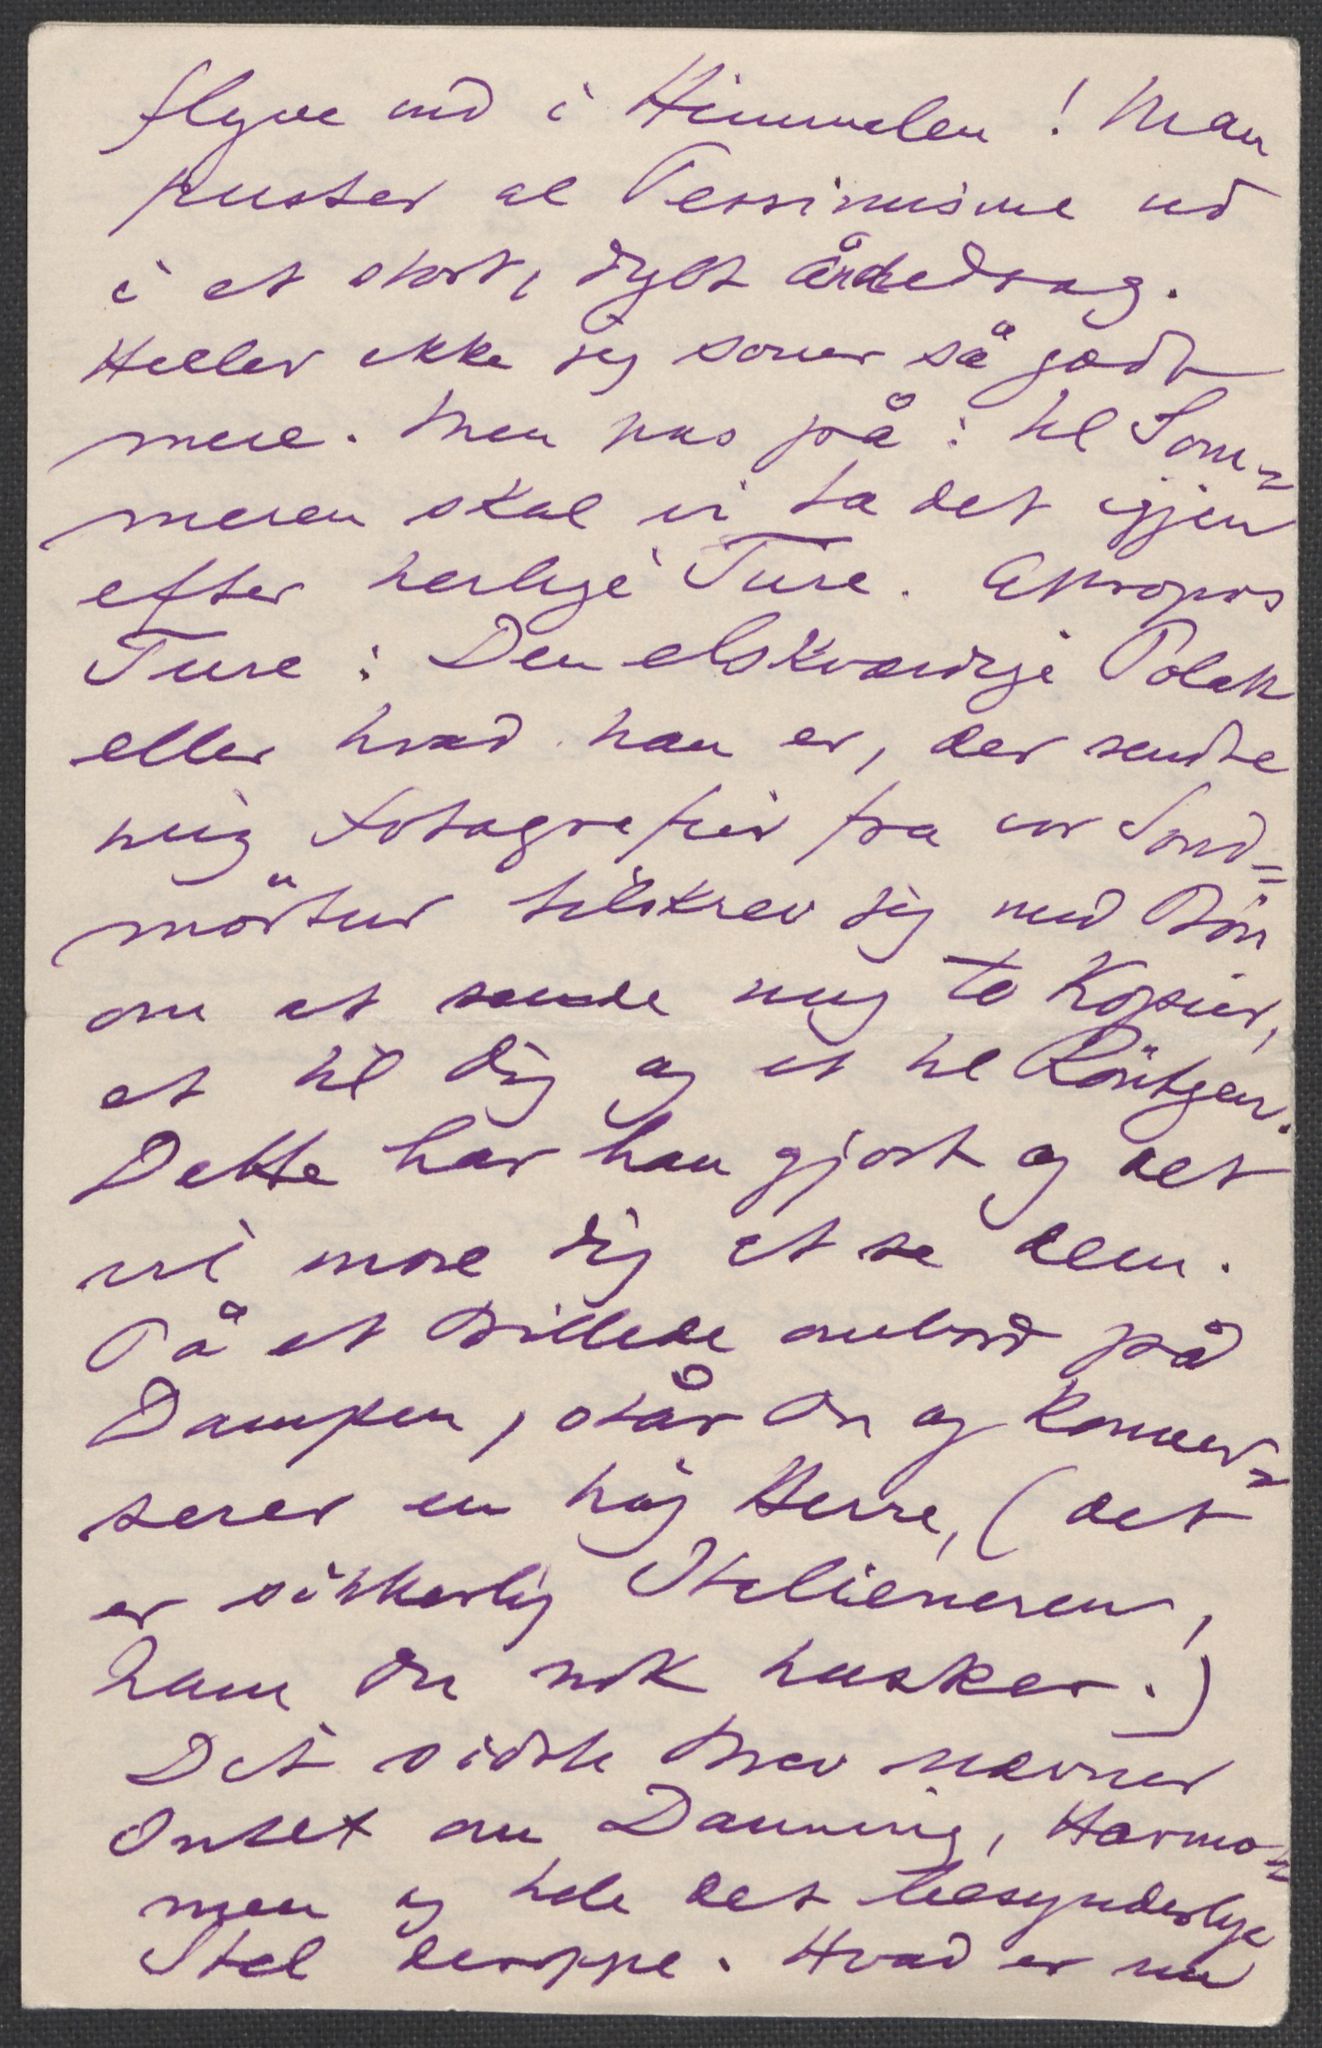 flyve ind i Himmelen! Man
puster al Pessimisme ud
i et stort, dybt åndedrag.
Heller ikke jeg sover så godt
mere. Men pas på: til Som=
meren skal vi ta det igjen
efter herlige Ture. Apropos
Ture: Den elskværdige Polak
eller hvad han er, der sendte
mig Fotografier fra vor Sönd=
mörtur tilskrev jeg med Bön
om at sende mig to Kopier,
et til dig og et til Röntgen.
Dette har han gjort og det
vil more dig at se dem.
På et Billede ombord på
Dampen, står Du og konver=
serer en höj Herre, (det
er sikkerlig Italieneren,
ham Du nok husker.)
Dit sidste Brev nævner
Intet om Danning, Harmo=
nien og hele det besynderlige
Stel deroppe. Hvad er nu